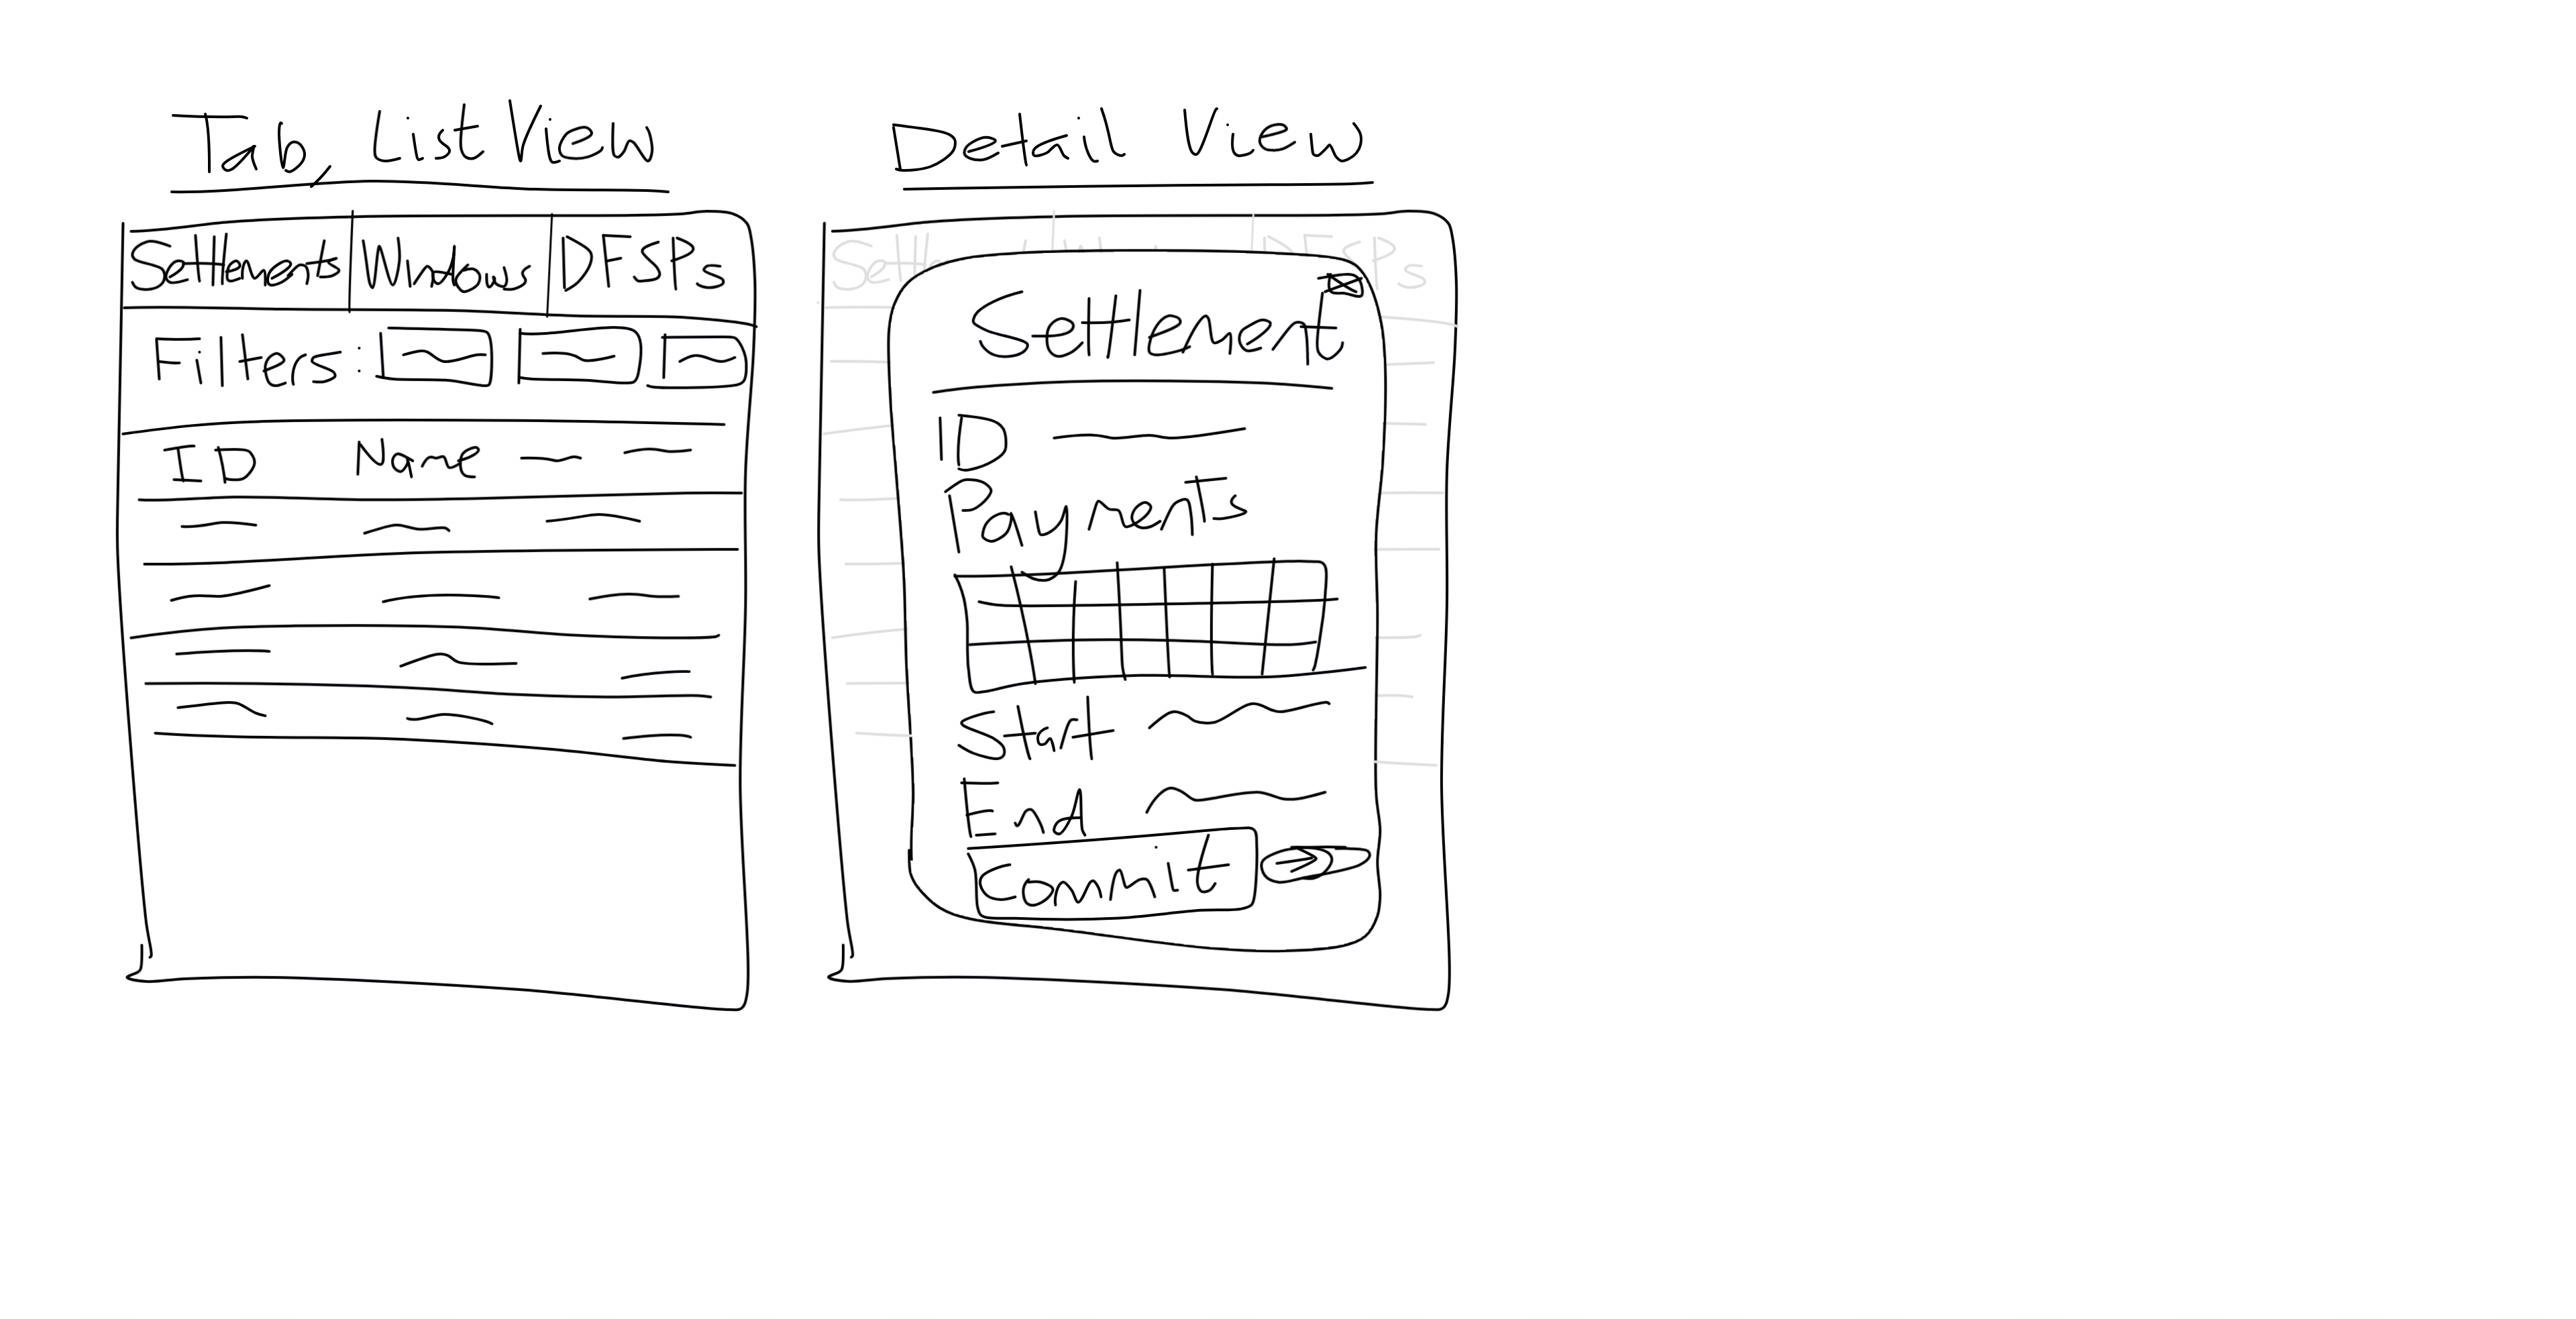 Tab, List View
Settlements Windows DFSPs
Filters:
ID Name
Detail View
Settl W DFSPs
Settlement
ID
Payments
Start
End
Commit